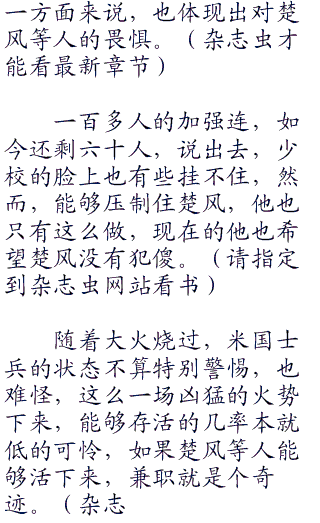 一方面来说，也体现出对楚
风等人的畏惧。（杂志虫才
能看最新章节）
一百多人的加强连，如
今还剩六十人，说出去，少
校的脸上也有些挂不住，然
而，能够压制住楚风，他也
只有这么做，现在的他也希
望楚风没有犯傻。（请指定
到杂志虫网站看书）
随着大火烧过，米国士
兵的状态不算特别警惕，也
难怪，这么一场凶猛的火势
下来，能够存活的几率本就
低的可怜，如果楚风等人能
够活下来，兼职就是个奇
迹。（杂志